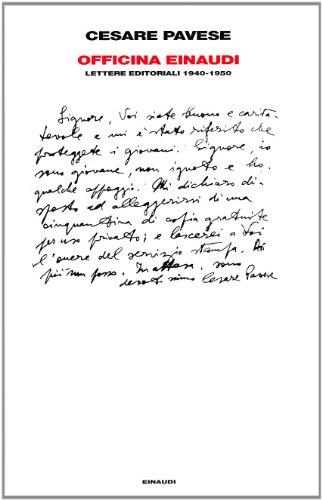 CESARE PAVESE
OFFICINA EINAUDI
LETTERE EDITORIALI 1940-1950
Signore, Voi siete buono e cari-
tevole e mi è stato riferito che
proteggete i giovani. Signore, io
sono giovane, non ignoto e ho
qualche appoggio. Mi dichiaro di-
sposto ad alleggerirvi di una
cinquantina di copie gratuite
per uso privato; e lascerei a Voi
l'onere del servizio stampa. Di
più non posso. In attesa, sono
devotissimo Cesare Pavese
EINAUDI